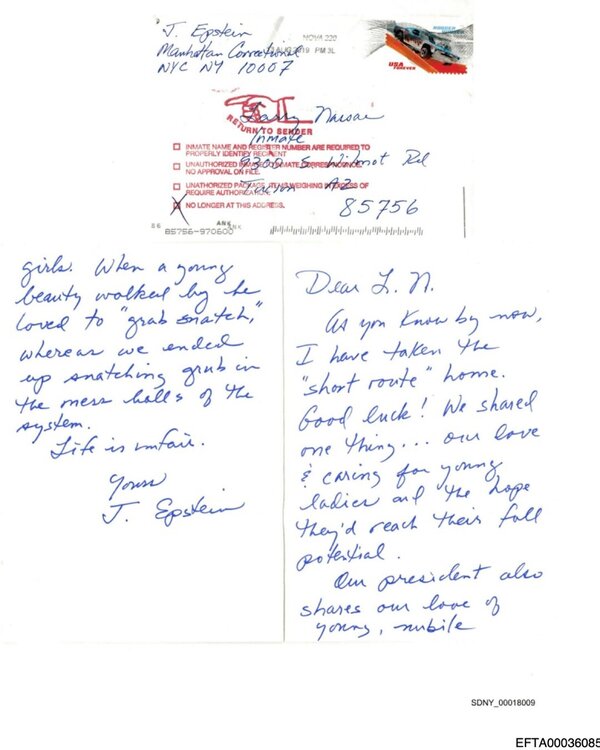 J. Epstein
Manhattan Correctional
NYC NY 10007
NOVA 220
AUG 2019 PM 3L
USA
FOREVER
RETURN TO SENDER
Larry Nassar
Inmate
9300 S. Wilmot Rd
Tucson AZ
85756
INMATE NAME AND REGISTER NUMBER ARE REQUIRED TO
PROPERLY IDENTIFY RECIPIENT
UNAUTHORIZED INMATE TO INMATE CORRESPONDENCE.
NO APPROVAL ON FILE.
UNAUTHORIZED PACKAGE. ITEMS WEIGHING IN EXCESS OF
REQUIRE AUTHORIZATION.
NO LONGER AT THIS ADDRESS.
86
ANK
85756-970600
Dear L. N.
As you know by now,
I have taken the
"short route" home.
Good luck! We shared
one thing... our love
& caring for young
ladies and the hope
they'd reach their full
potential.
Our president also
shares our love of
young, nubile
girls. When a young
beauty walked by he
loved to "grab snatch,"
whereas we ended
up snatching grub in
the mess halls of the
system.
Life is unfair.
Yours
J. Epstein
SDNY_00018009
EFTA00036085